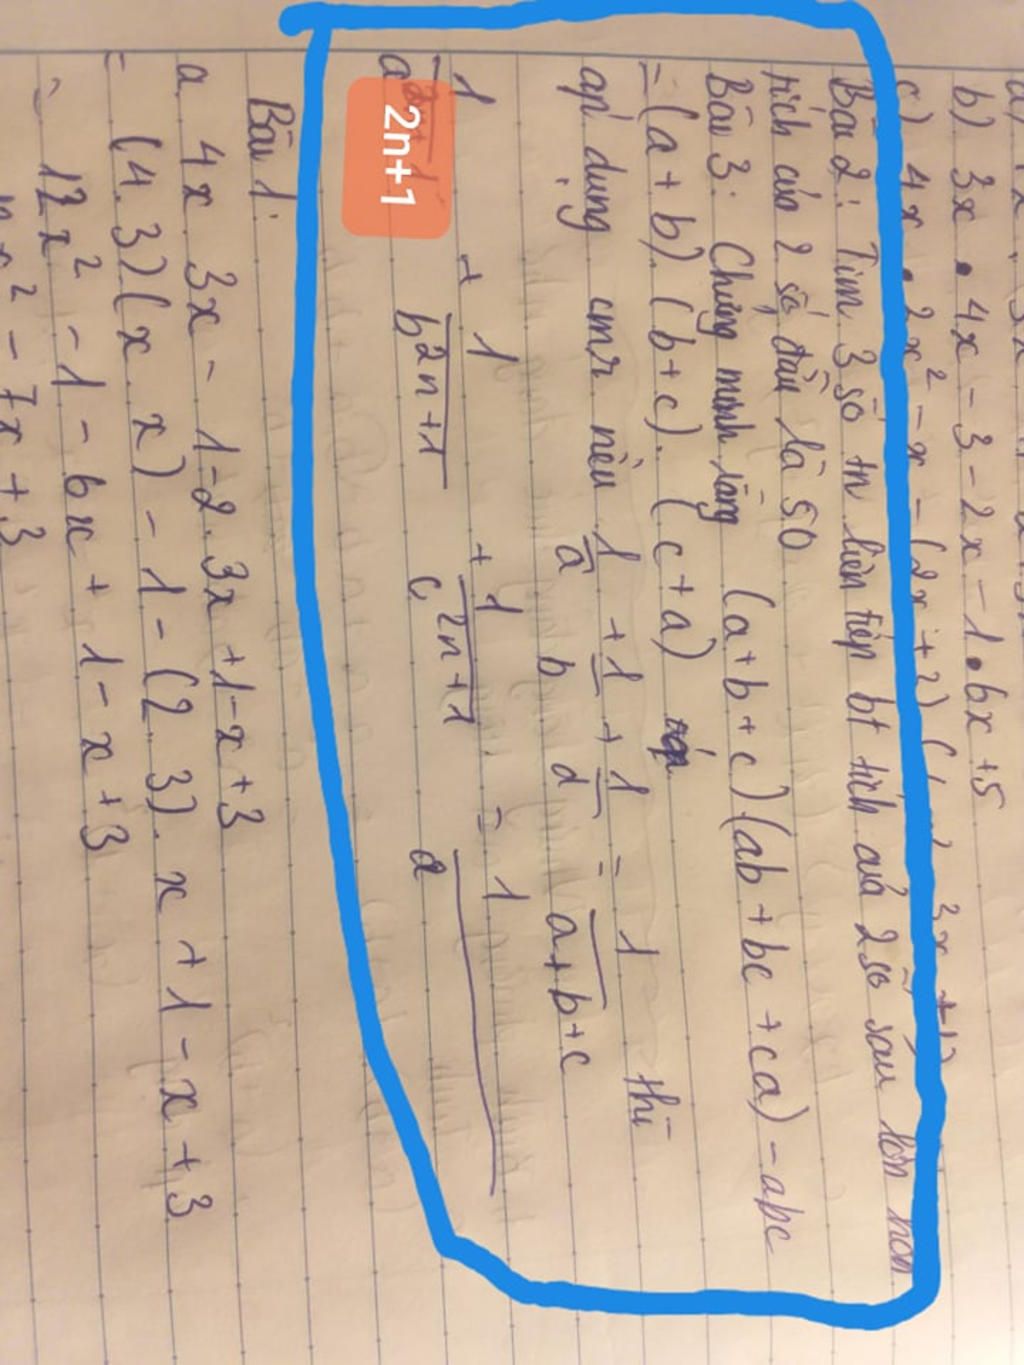 b) 3x . 4x - 3 - 2x - 1 . 6x + 5
c) 4x . 2x² - x - (2x + 2)
Bài 2: Tìm 3 số tn liên tiếp bt tích của 2 số sau lớn hơn
tích của 2 số đầu là 50
Bài 3: Chứng minh rằng (a+b+c)(ab+bc+ca)-abc
= (a+b).(b+c).(c+a)
áp dụng cmr nếu 1/a + 1/b + 1/d = 1/a+b+c thì
1/a 2n+1 + 1/b²ⁿ⁺¹ + 1/c²ⁿ⁺¹ = 1/a
Bài 1:
a 4x 3x - 1-2. 3x + 1-x+3
= (4. 3)(x. x) - 1 - (2. 3). x + 1 - x + 3
= 12x² - 1 - 6x + 1 - x + 3
x² - 7x + 3